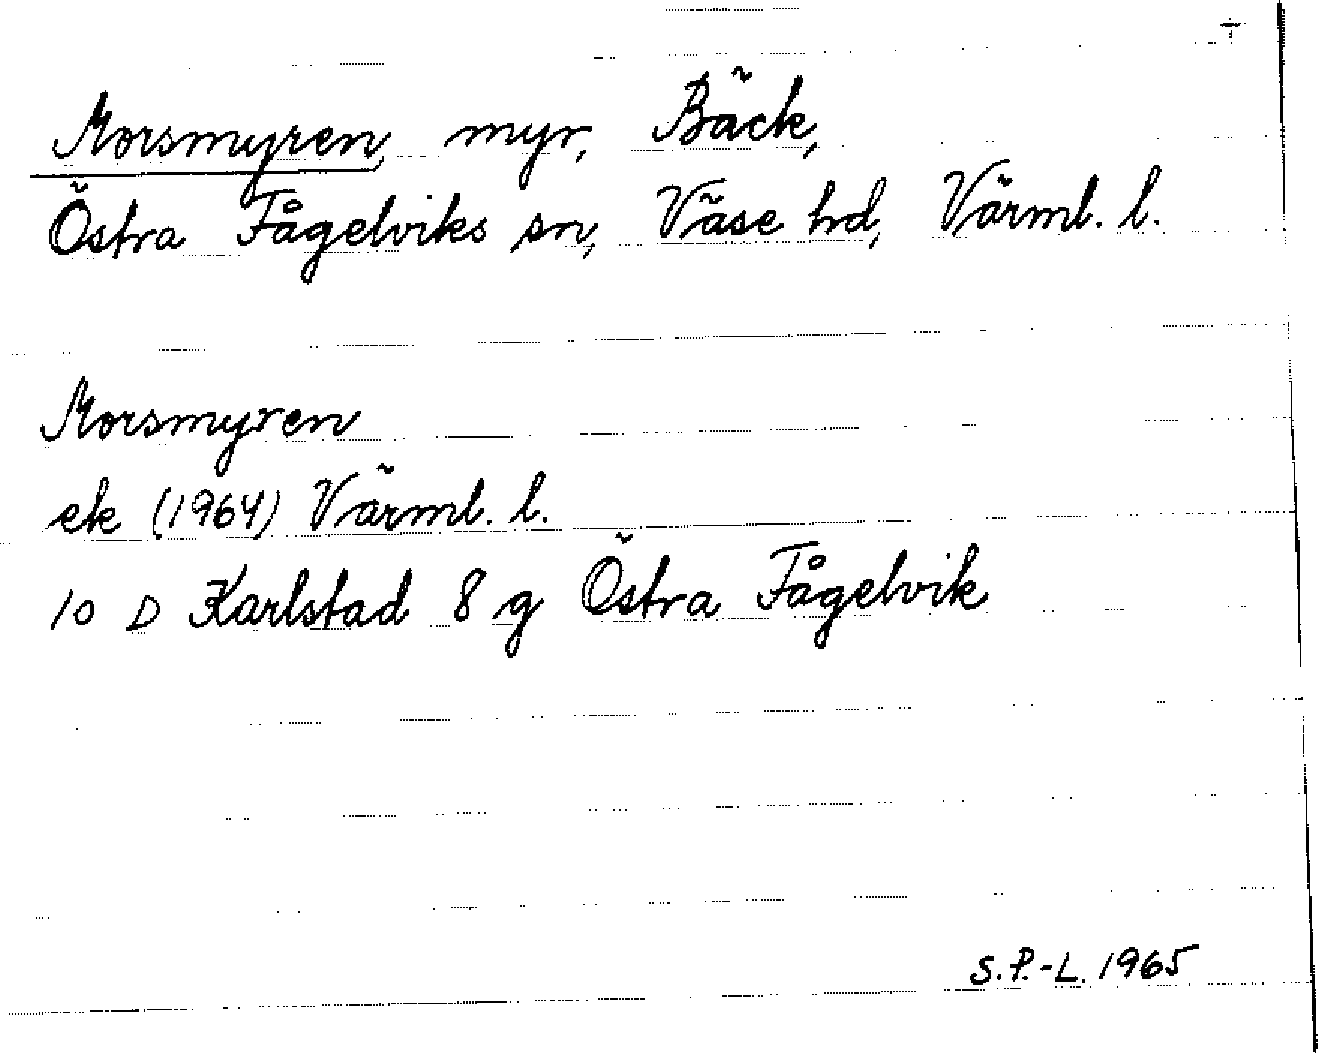 Morsmyren, myr, Bäck,
Östra Fågelviks sn, Väse hd, Värml. l.
Morsmyren
ek (1964) Värml. l.
10 D Karlstad 8 g Östra Fågelvik
S.P.-L. 1965